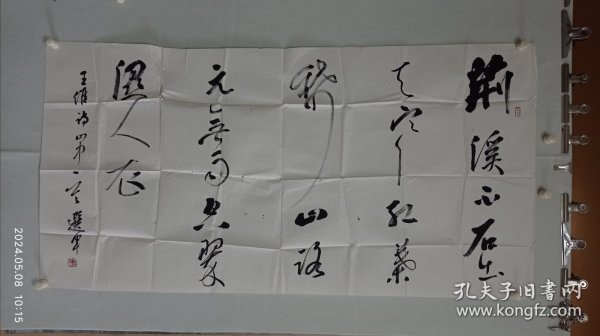 荆溪白石出
天寒红葉
稀山路
元無雨空翠
濕人衣
王維詩山中一首
2024.05.08 10:15
孔夫子旧书网
www.kongfz.com